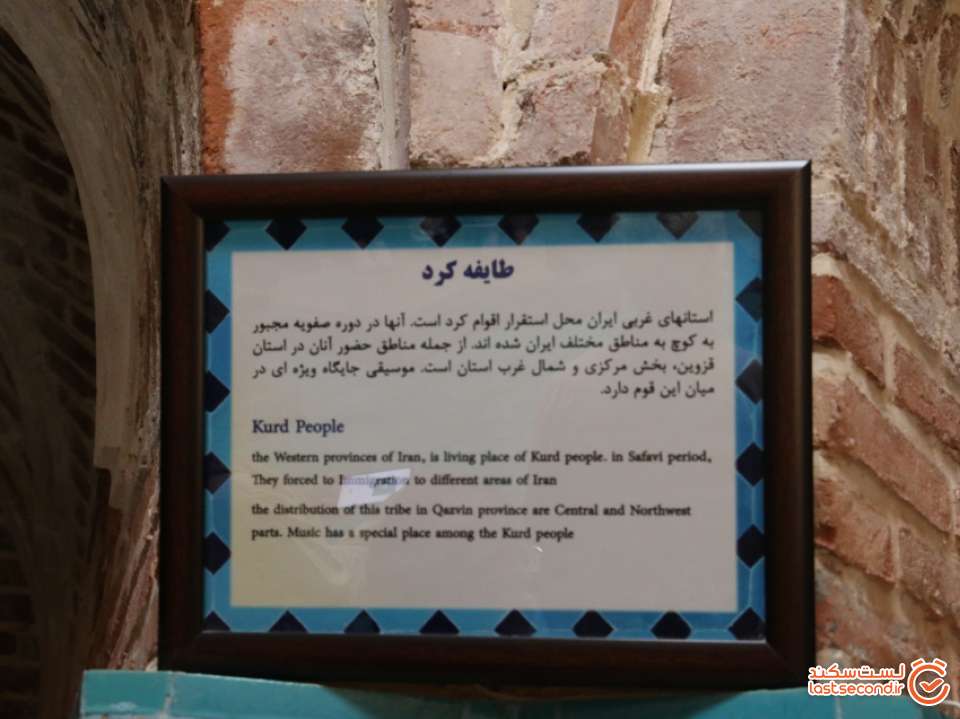 طایفه کرد
استانهای غربی ایران محل استقرار اقوام کرد است. آنها در دوره صفویه مجبور
به کوچ به مناطق مختلف ایران شده اند. از جمله مناطق حضور آنان در استان
قزوین، بخش مرکزی و شمال غرب استان است. موسیقی جایگاه ویژه ای در
میان این قوم دارد.
Kurd People
the Western provinces of Iran, is living place of Kurd people. in Safavi period,
They forced to Immigration to different areas of Iran
the distribution of this tribe in Qazvin province are Central and Northwest
parts. Music has a special place among the Kurd people
لست‌سکند
lastsecond.ir